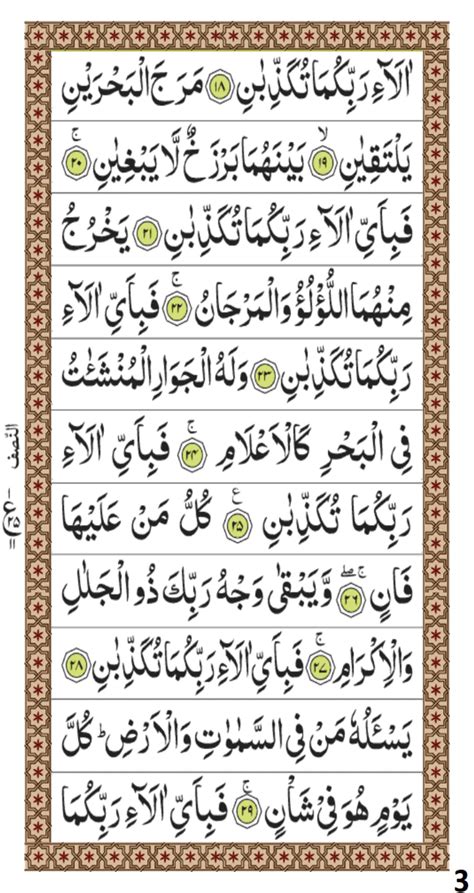 اٰلَآءِ رَبِّكُمَا تُكَذِّبٰنِ ۝۱۸ مَرَجَ الْبَحْرَيْنِ
يَلْتَقِيٰنِ ۝۱۹ۙ بَيْنَهُمَا بَرْزَخٌ لَّا يَبْغِيٰنِ ۝۲۰ۚ
فَبِاَيِّ اٰلَآءِ رَبِّكُمَا تُكَذِّبٰنِ ۝۲۱ يَخْرُجُ
مِنْهُمَا اللُّؤْلُؤُ وَالْمَرْجَانُ ۝۲۲ۚ فَبِاَيِّ اٰلَآءِ
رَبِّكُمَا تُكَذِّبٰنِ ۝۲۳ وَلَهُ الْجَوَارِ الْمُنْشَئٰتُ
فِى الْبَحْرِ كَالْاَعْلَامِ ۝۲۴ۚ فَبِاَيِّ اٰلَآءِ
رَبِّكُمَا تُكَذِّبٰنِ ۝۲۵ ع كُلُّ مَنْ عَلَيْهَا
فَانٍ ۝۲۶ۚۖ وَّيَبْقٰى وَجْهُ رَبِّكَ ذُو الْجَلٰلِ
وَالْاِكْرَامِ ۝۲۷ۚ فَبِاَيِّ اٰلَآءِ رَبِّكُمَا تُكَذِّبٰنِ ۝۲۸
يَسْـَٔلُهٗ مَنْ فِى السَّمٰوٰتِ وَالْاَرْضِ ؕ كُلَّ
يَوْمٍ هُوَ فِيْ شَاْنٍ ۝۲۹ۚ فَبِاَيِّ اٰلَآءِ رَبِّكُمَا
النصف
ع ۲۵
3